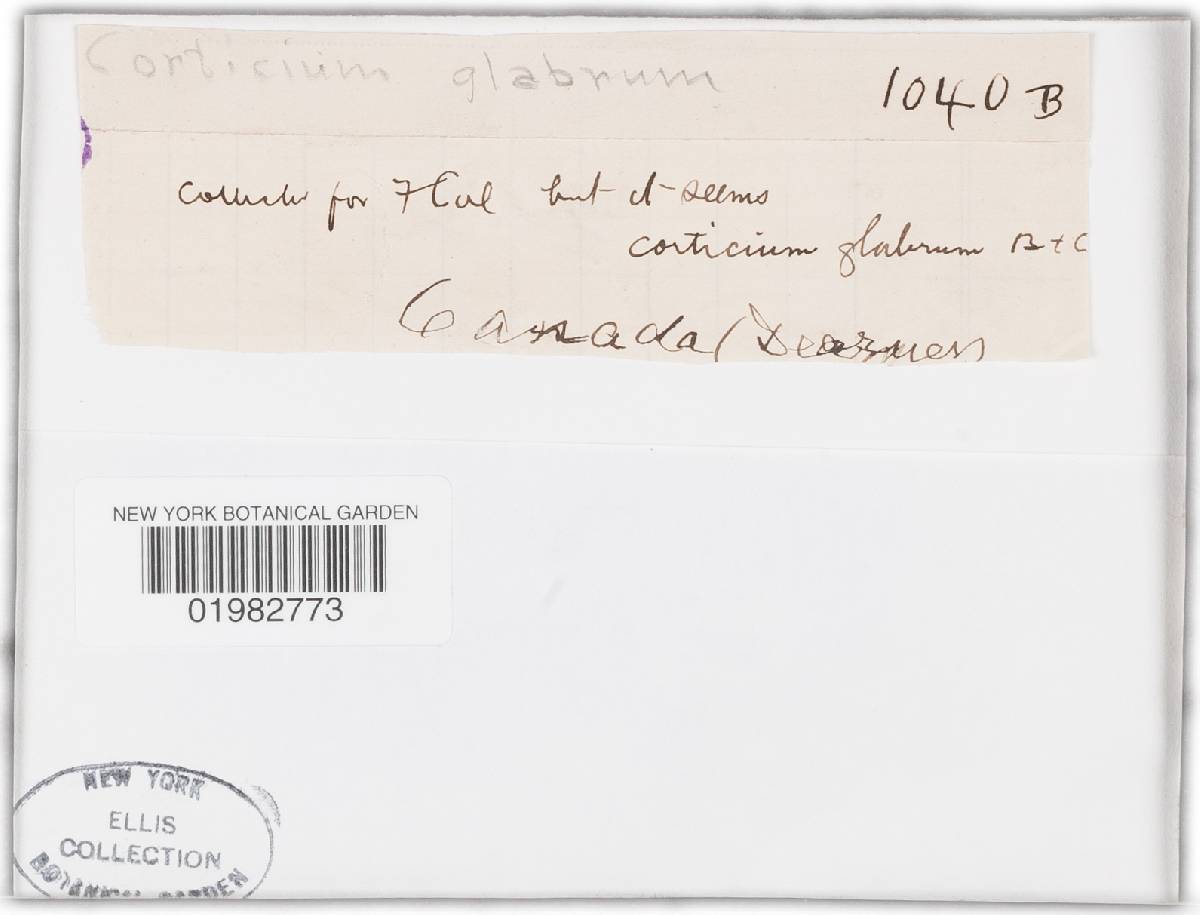 Corticium glabrum
1040 B
for but it seems
corticium glabrum B + C
Canada (Dearness
NEW YORK BOTANICAL GARDEN
01982773
NEW YORK
ELLIS
COLLECTION
BOTANICAL GARDEN